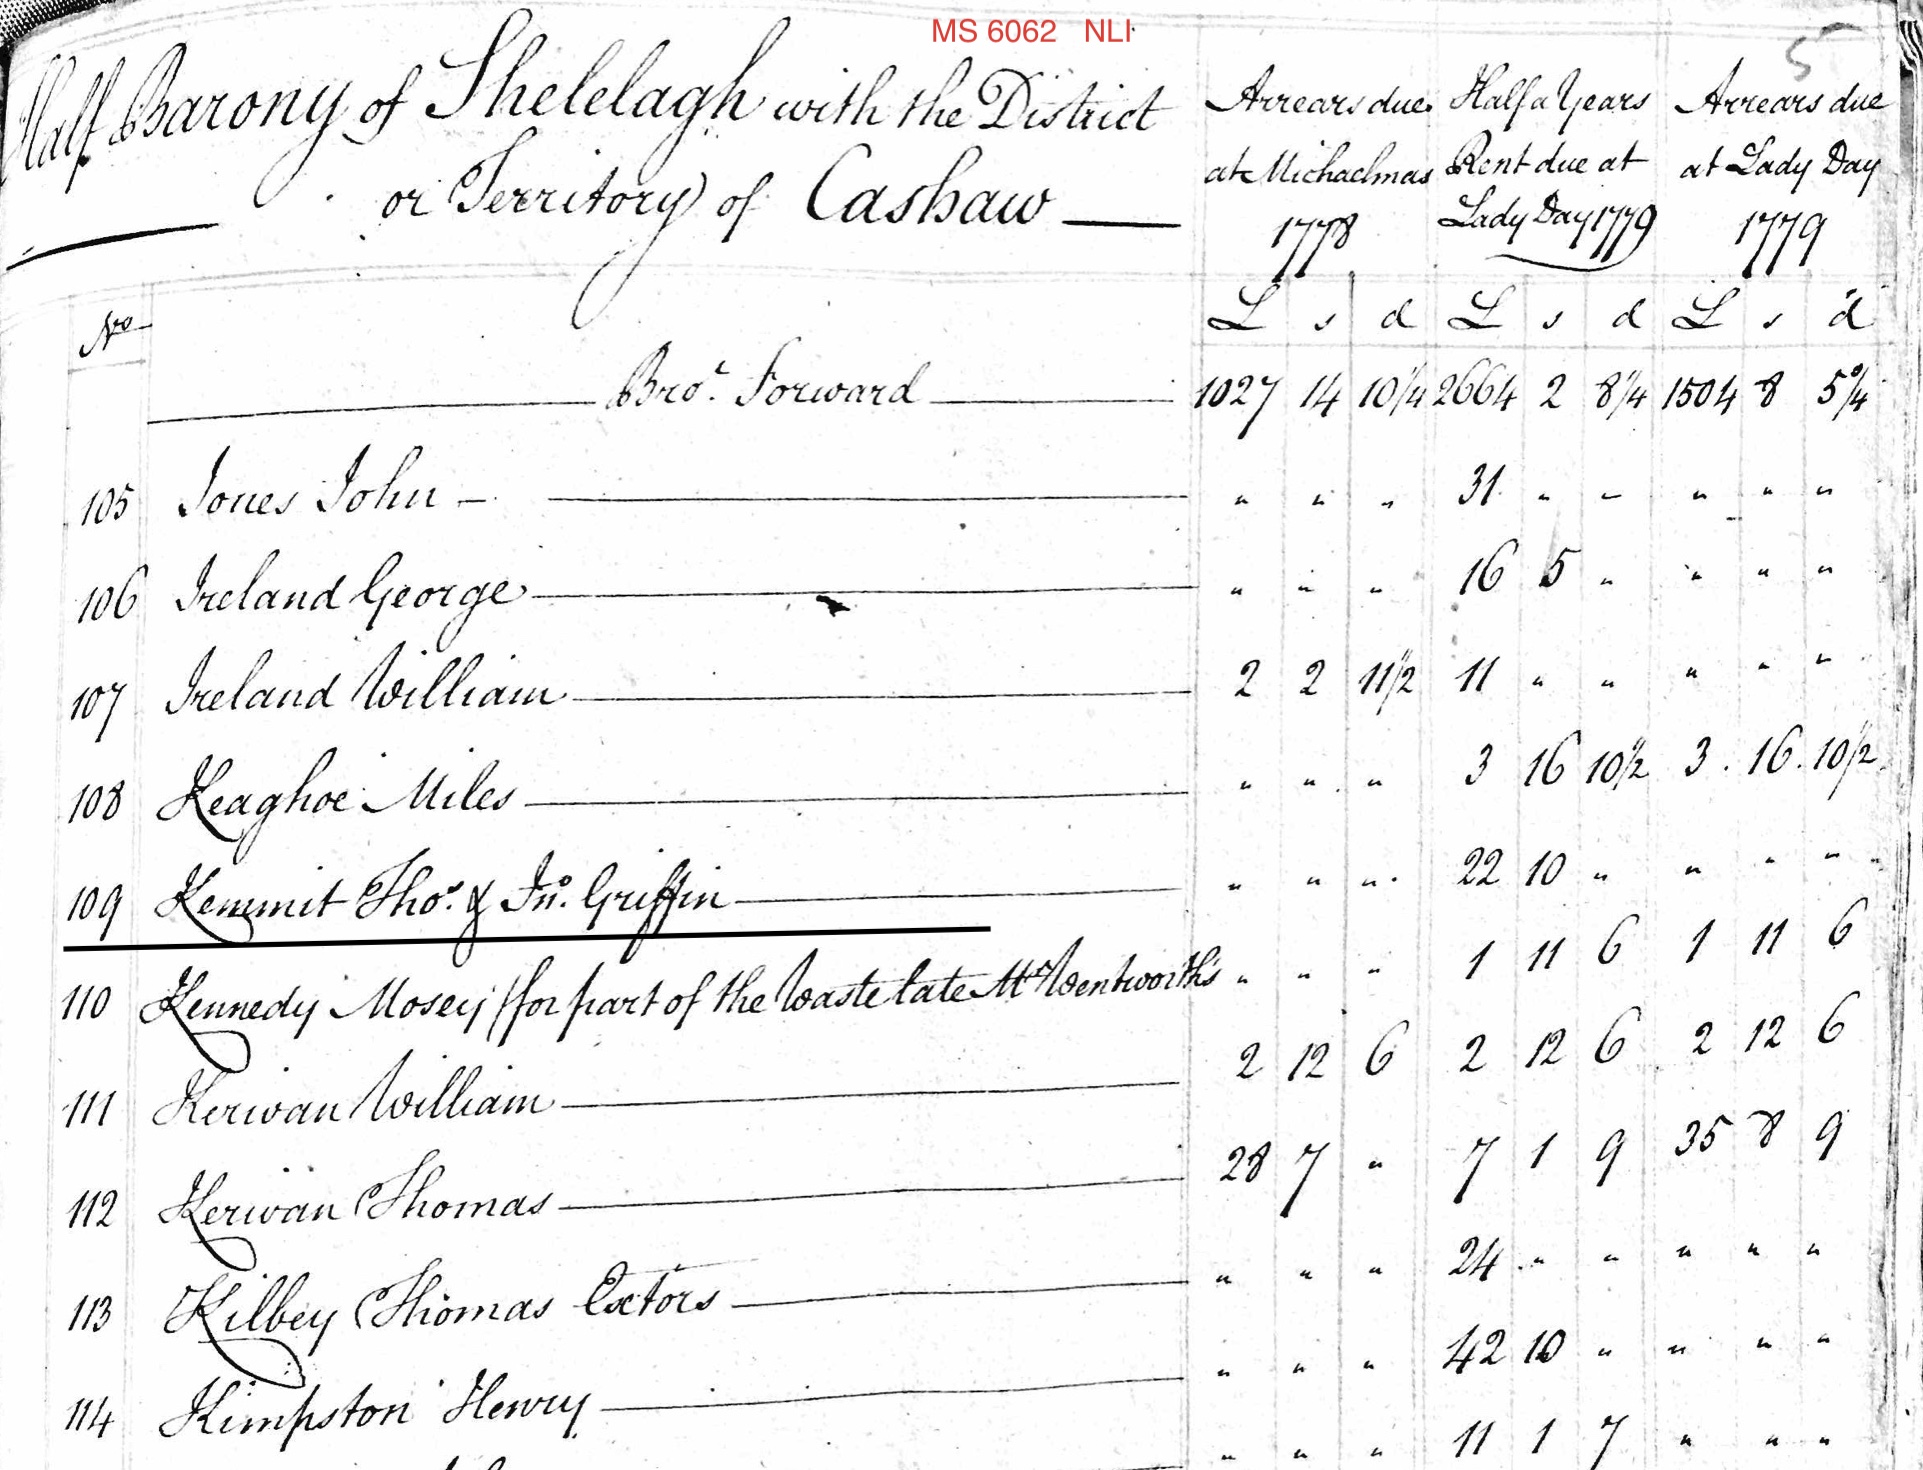 MS 6062 NLI
5
Half Barony of Shelelagh with the District
or Territory of Cashaw
Arrears due at Michaelmas 1778
Half a Years Rent due at Lady Day 1779
Arrears due at Lady Day 1779
No L s d L s d L s d
Bro.t Forward 1027 14 10 1/4 2664 2 8 1/4 1504 8 5 3/4
105 Jones John " " " 31 " " " " "
106 Ireland George " " " 16 5 " " " "
107 Ireland William 2 2 11 1/2 11 " " " " "
108 Keaghoe Miles " " " 3 16 10 1/2 3 . 16 . 10 1/2
109 Kemmit Tho.s & Jn.o Griffin " " " 22 10 " " " "
110 Kennedy Mosey /for part of the Waste late Mr Wentworth's " " " 1 11 6 1 11 6
111 Kerwan William 2 12 6 2 12 6 2 12 6
112 Kerwan Thomas 28 7 " 7 1 9 35 8 9
113 Kilbey Thomas Extors " " " 24 " " " " "
114 Kimpston Henry " " " 42 10 " " " "
" " " 11 1 7 " " "